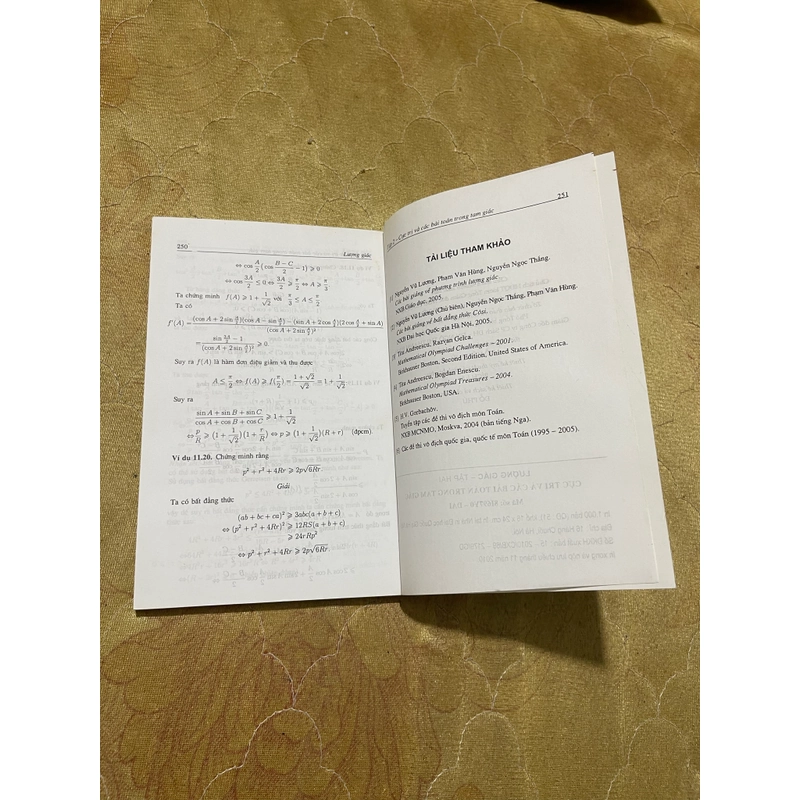 250
Lượng giác
⇔ cos A/2 (cos (B − C)/2 − 1) ⩾ 0
⇔ cos 3A/2 ≤ 0 ⇔ 3A/2 ⩾ π/2 ⇔ A ⩾ π/3
Ta chứng minh f(A) ⩾ 1 + 1/√2 với π/3 ≤ A ≤ π/2
Ta có
f'(A) =
= (sin 3A/2 − 1)/(cos A + 2 sin A/2)² ⩾ 0.
Suy ra f(A) là hàm đơn điệu giảm và thu được
A ≤ π/2 ⇔ f(A) ⩾ f(π/2) = (1 + √2)/√2 = 1 + 1/√2
Suy ra
(sin A + sin B + sin C)/(cos A + cos B + cos C) ⩾ 1 + 1/√2
⇔ p/R ⩾ (1 + 1/√2)(1 + r/R) ⇔ p ⩾ (1 + 1/√2)(R + r) (đpcm).
Ví dụ 11.20. Chứng minh rằng
p² + r² + 4Rr ⩾ 2p√6Rr.
Giải
Ta có bất đẳng thức
(ab + bc + ca)² ⩾ 3abc(a + b + c)
⇔ (p² + r² + 4Rr)² ⩾ 12RS(a + b + c)
⩾ 24rRp²
⇔ p² + r² + 4Rr ⩾ 2p√6Rr.
251
– Cực trị và các bài toán trong tam giác
TÀI LIỆU THAM KHẢO
Nguyễn Vũ Lương, Phạm Văn Hùng, Nguyễn Ngọc Thắng.
Các bài giảng về phương trình lượng giác.
NXB Giáo dục, 2005.
Nguyễn Vũ Lương (Chủ biên), Nguyễn Ngọc Thắng, Phạm Văn Hùng.
Các bài giảng về bất đẳng thức Côsi.
NXB Đại học Quốc gia Hà Nội, 2005.
Titu Andreescu, Razvan Gelca.
Mathematical Olympiad Challenges – 2001.
Birkhauser Boston, Second Edition, United States of America.
Titu Andreescu, Bogdan Enescu.
Mathematical Olympiad Treasures – 2004.
Birkhauser Boston, USA.
H.V. Gorbachôv.
Tuyển tập các đề thi vô địch môn Toán.
NXB MCNMO, Moskva, 2004 (bản tiếng Nga).
Các đề thi vô địch quốc gia, quốc tế môn Toán (1995 – 2005).